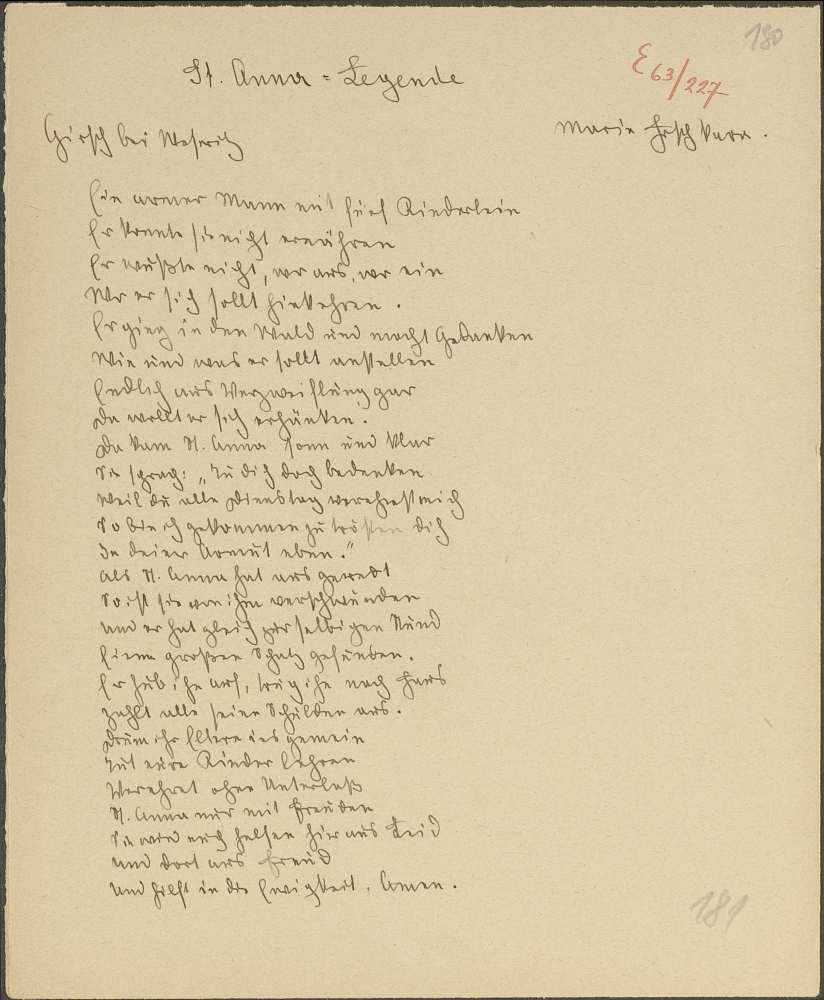 180
St. Anna = Legende
E 63/227
Girsch bei Weseritz
Marie
Ein armer Mann mit fünf Kinderlein
Er konnte sie nicht ernähren
Er wußte nicht, wo aus, wo ein
Wo er sich sollt hinkehren.
Er ging in den Wald und macht Gedanken
Wie und was er sollt anstellen
Endlich aus Verzweiflung gar
Da wollt er sich erhänken.
Da kam St. Anna sonn und klar
Sie sprach: „Tu dich doch bedenken
Weil du alle Dienstag verehrest mich
So bin ich gekommen zu trösten dich
In deiner Armut eben."
Als St. Anna hat ausgeredt
So ist sie von ihm verschwunden
Und er hat gleich zur selbigen Stund
Einen großen Schatz gefunden.
Er hub ihn auf, trug ihn nach Haus
Zahlt alle seine Schulden aus.
Drum ihr Eltern insgemein
Tut eure Kinder lehren
Verehret ohne Unterlaß
St. Anna nur mit Freuden
Sie wird euch helfen hier aus Leid
Und dort aus Freud
Und hilft in die Ewigkeit. Amen.
181